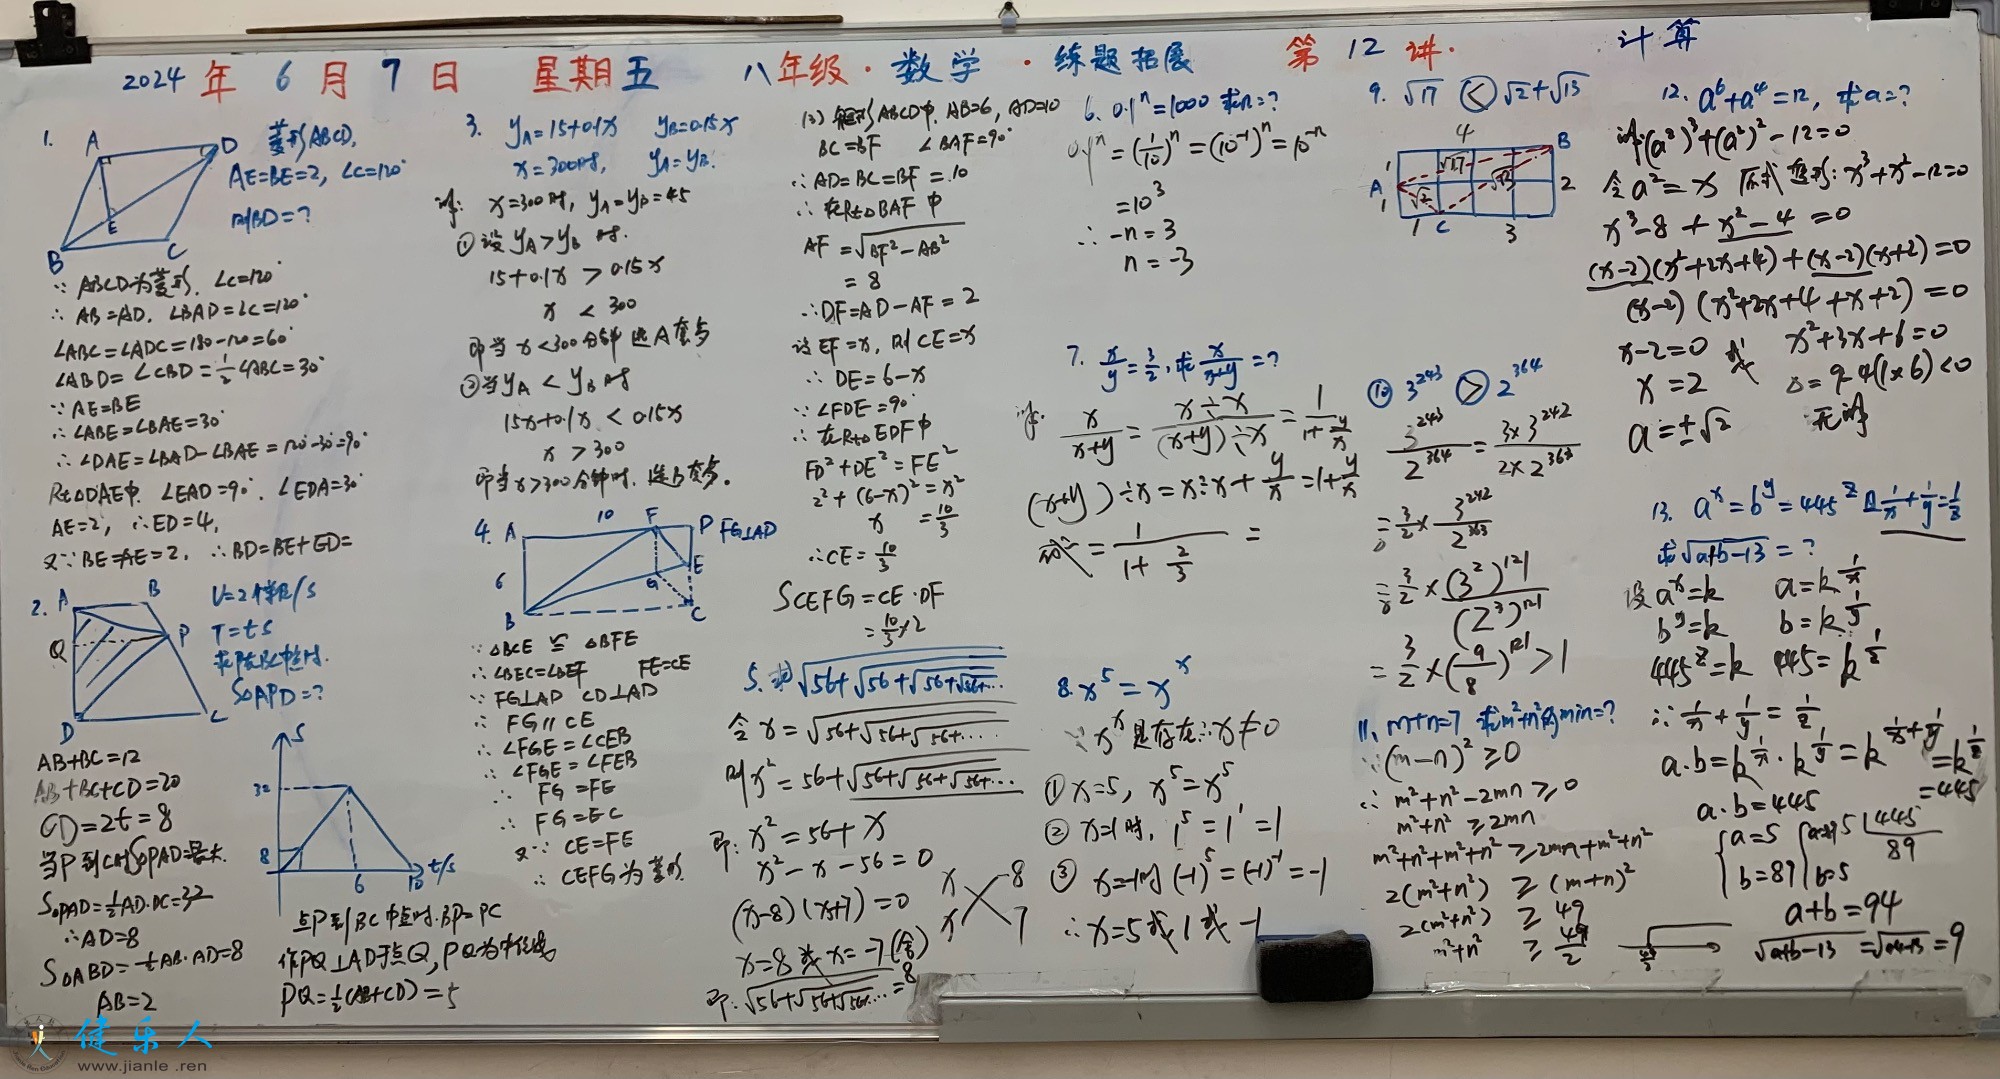 2024年6月7日 星期五 八年级·数学·练题拓展 第12讲. 计算
1.
A
D
B
E
C
菱形ABCD,
AE=BE=2, ∠C=120°
则BD=?
∵ ABCD为菱形, ∠C=120°
∴ AB=AD, ∠BAD=∠C=120°
∠ABC=∠ADC=180-120=60°
∠ABD=∠CBD=1/2∠ABC=30°
∵ AE=BE
∴ ∠ABE=∠BAE=30°
∴ ∠DAE=∠BAD-∠BAE=120°-30°=90°
Rt△DAE中, ∠EAD=90°, ∠EDA=30°
AE=2, ∴ED=4,
又∵BE=AE=2, ∴BD=BE+ED=
2.
A
B
Q
P
D
C
T=ts
S△APD=?
AB+BC=12
AB+BC+CD=20
CD=2t=8
S△PAD=1/2AD·DC=32
∴AD=8
S△ABD=1/2AB·AD=8
AB=2
S
32
8
6
10
t/s
点P到BC中点时,BP=PC
作PQ⊥AD于点Q, PQ为中位线
PQ=1/2(AB+CD)=5
3. yA=15+0.1x yB=0.15x
x=300时, yA=yB
解: x=300时, yA=yB=45
①设yA>yB时.
15+0.1x > 0.15x
x < 300
即当x<300分钟选A套餐
②当yA < yB时
15x+0.1x < 0.15x
x > 300
即当x>300分钟时, 选B套餐。
4.
A
10
F
P
FG⊥AD
6
G
E
B
C
∵ △BCE ≌ △BFE
∴ ∠BEC=∠BEF FE=CE
∵ FG⊥AD CD⊥AD
∴ FG∥CE
∴ ∠FGE=∠CEB
∴ ∠FGE=∠FEB
∴ FG=FE
∴ FG=EC
又∵ CE=FE
∴ CEFG为菱形
(2) 矩形ABCD中, AB=6, AD=10
BC=BF ∠BAF=90°
∴ AD=BC=BF=10
∴ 在Rt△BAF中
AF=√(BF²-AB²)
=8
∴DF=AD-AF=2
设EF=x, 则CE=x
∴ DE=6-x
∵ ∠FDE=90°
∴ 在Rt△EDF中
FD²+DE²=FE²
2²+(6-x)²=x²
x =10/3
∴CE=10/3
SCEFG=CE·DF
=10/3×2
5. 求√56+√56+√56+√56+…
令x=√56+√56+√56+…
则x²=56+√56+√56+√56+…
即: x²=56+x
x²-x-56=0
(x-8)(x+7)=0
x -8
x 7
x=8或x=-7(舍)
即: √56+√56+√56…=8
6. 0.1ⁿ=1000 求n=?
0.1ⁿ=(1/10)ⁿ=(10⁻¹)ⁿ=10⁻ⁿ
=10³
∴ -n=3
n=-3
7. x/y=3/2, 求x/(x+y)=?
解. x/(x+y)=(x÷x)/((x+y)÷x)=1/(1+y/x)
(x+y)÷x=x÷x+y/x=1+y/x
=1/(1+2/3) =
8. x⁵=xˣ
∵xˣ是存在∴x≠0
①x=5, x⁵=x⁵
②x=1时, 1⁵=1¹=1
③x=-1时(-1)⁵=(-1)⁻¹=-1
∴x=5或1或-1
9. √17 < √2+√13
4
1
√17
B
A
√2
√13
2
1
1
C
3
⑩ 3²⁴³ > 2³⁶⁴
3²⁴³/2³⁶⁴=(3×3²⁴²)/(2×2³⁶³)
=3/2×3²⁴²/2³⁶³
=3/2×(3²)¹²¹/(2³)¹²¹
=3/2×(9/8)¹²¹>1
11. m+n=7 求m²+n²的min=?
∵(m-n)²≥0
∴ m²+n²-2mn≥0
m²+n²≥2mn
m²+n²+m²+n²≥2mn+m²+n²
2(m²+n²)≥(m+n)²
2(m²+n²)≥49
m²+n²≥49/2
12. a⁶+a⁴=12, 求a=?
解:(a²)³+(a²)²-12=0
令a²=x 原式变形: x³+x²-12=0
x³-8+x²-4=0
(x-2)(x²+2x+4)+(x-2)(x+2)=0
(x-2)(x²+2x+4+x+2)=0
x-2=0 或 x²+3x+6=0
x=2 Δ=9-4(1×6)<0
a=±√2 无解
13. aˣ=bʸ=445ᶻ且1/x+1/y=1/z
求√(a+b-13)=?
设aˣ=k a=k^(1/x)
bʸ=k b=k^(1/y)
445ᶻ=k 445=k^(1/z)
∵1/x+1/y=1/z
a·b=k^(1/x)·k^(1/y)=k^(1/x+1/y)=k^(1/z)
=445
a·b=445
a=5
b=89
b=5
5 445
89
a+b=94
√(a+b-13)=√(94-13)=9
健乐人
www.jianle.ren